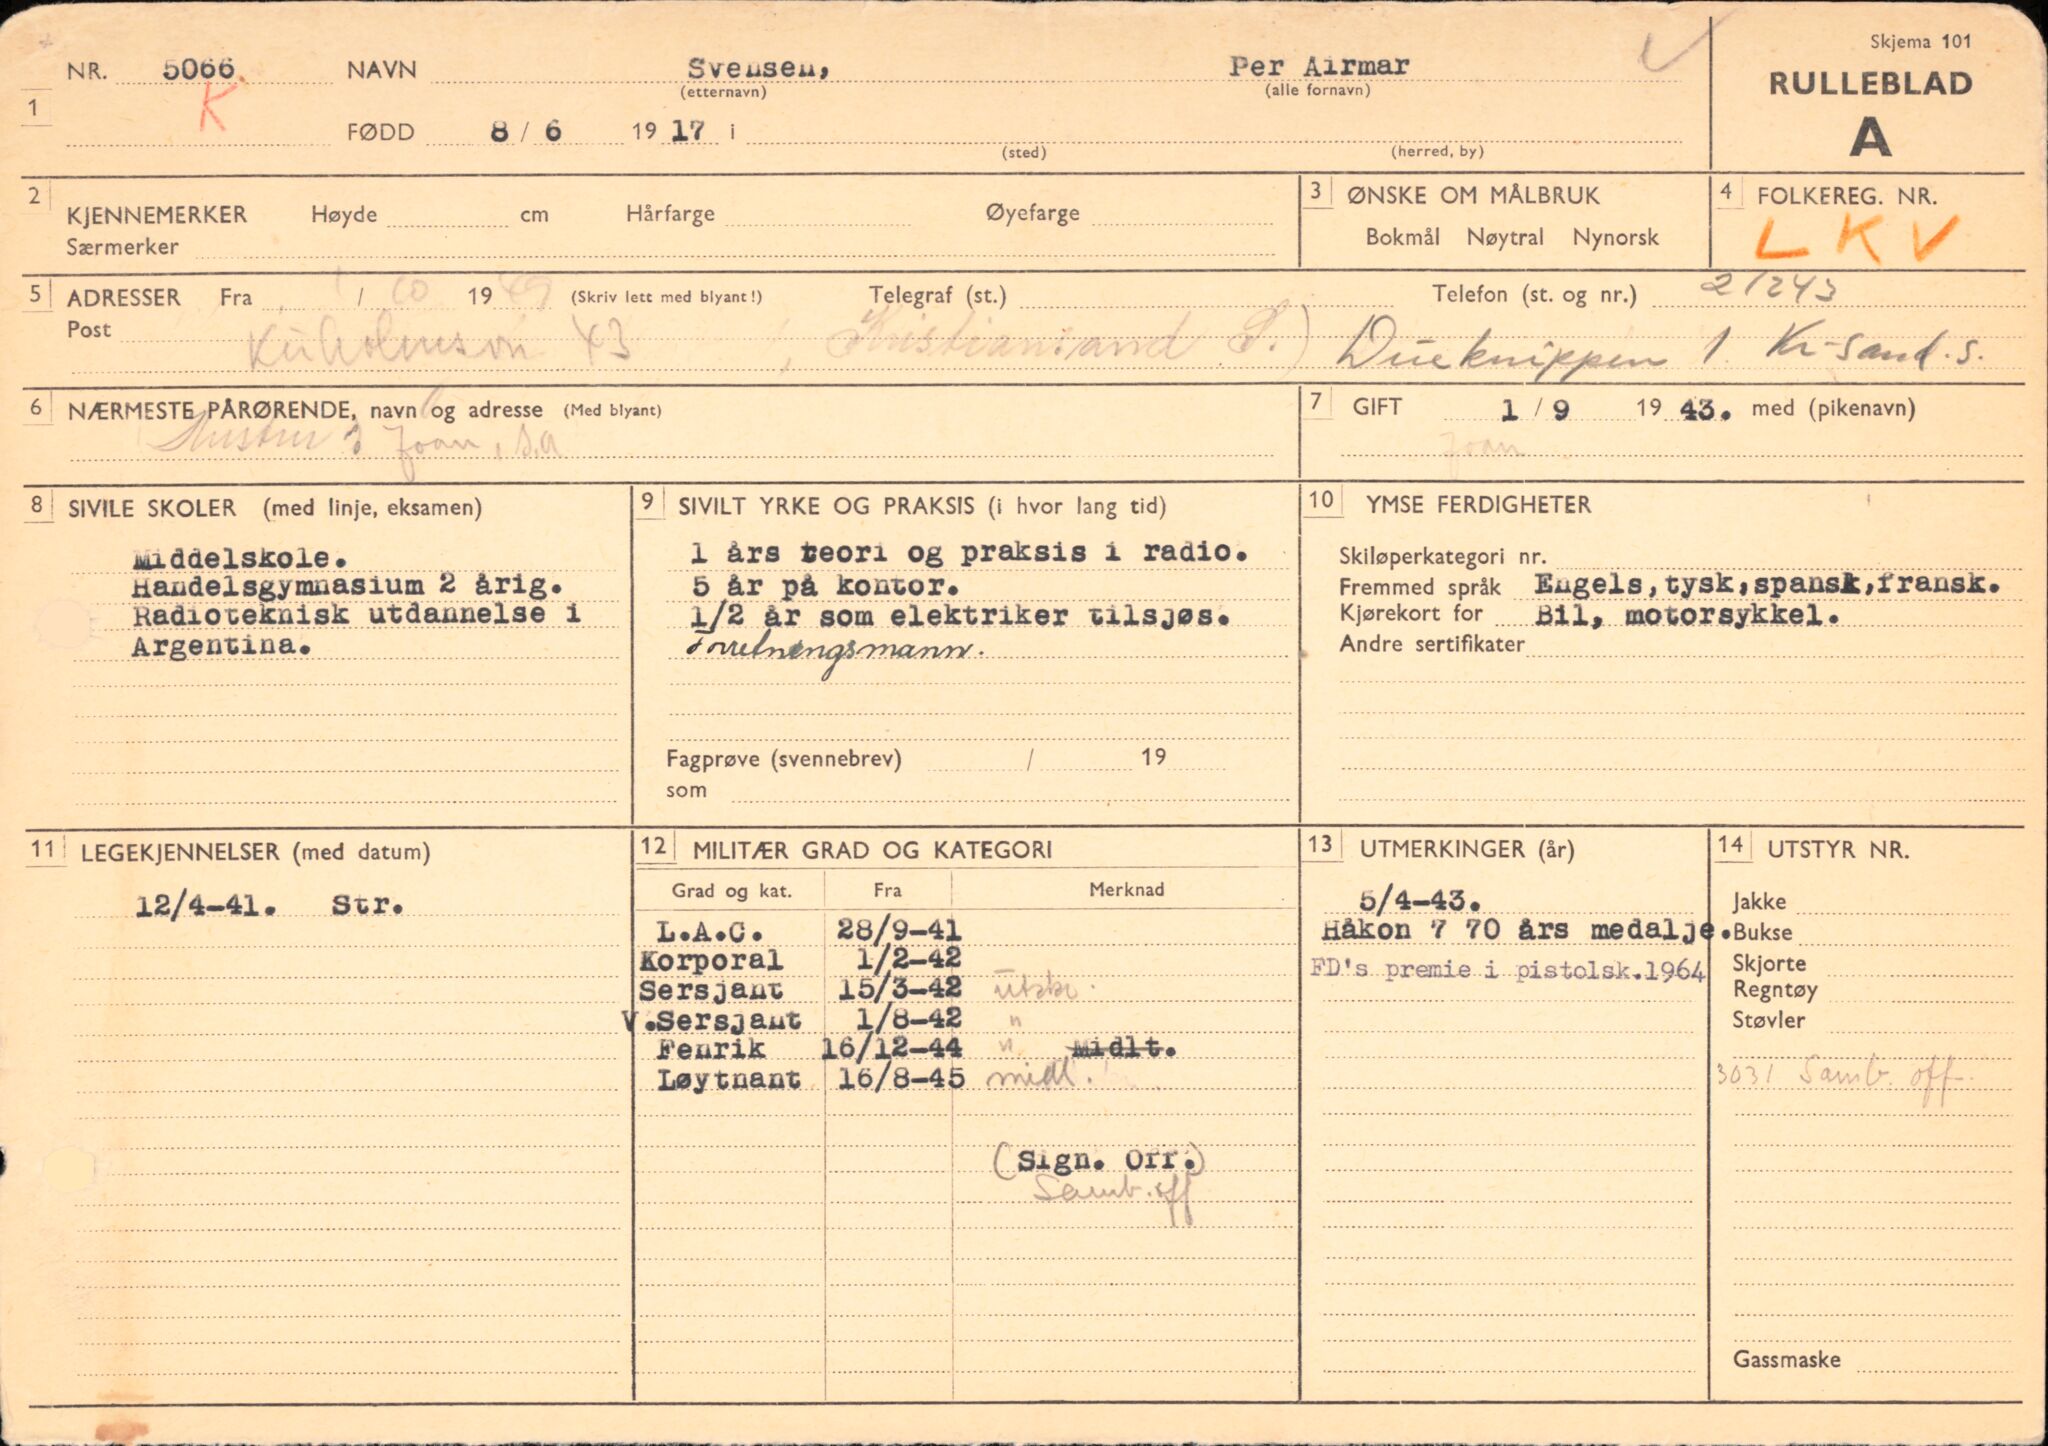 Skjema 101
RULLEBLAD
A
NR. 5066 NAVN Svensen, Per Airmar
(etternavn) (alle fornavn)
1 K FØDD 8 / 6 19 17 i
(sted) (herred, by)
2 KJENNEMERKER Høyde cm Hårfarge Øyefarge
Særmerker
3 ØNSKE OM MÅLBRUK
Bokmål Nøytral Nynorsk
4 FOLKEREG. NR.
L K V
5 ADRESSER Fra 1 / 10 19 49 (Skriv lett med blyant!) Telegraf (st.) Telefon (st. og nr.) 21243
Post Kuholmsvn 43, Kristiansand S.) Dueknippen 1. Kr-sand. S.
6 NÆRMESTE PÅRØRENDE, navn og adresse (Med blyant)
Hustru Joan, s.a
7 GIFT 1 / 9 19 43. med (pikenavn)
Joan
8 SIVILE SKOLER (med linje, eksamen)
Middelskole.
Handelsgymnasium 2 årig.
Radioteknisk utdannelse i
Argentina.
9 SIVILT YRKE OG PRAKSIS (i hvor lang tid)
1 års teori og praksis i radio.
5 år på kontor.
1/2 år som elektriker tilsjøs.
Forretningsmann.
Fagprøve (svennebrev) / 19
som
10 YMSE FERDIGHETER
Skiløperkategori nr.
Fremmed språk Engels, tysk, spansk, fransk.
Kjørekort for Bil, motorsykkel.
Andre sertifikater
11 LEGEKJENNELSER (med datum)
12/4-41. Str.
12 MILITÆR GRAD OG KATEGORI
Grad og kat. Fra Merknad
L.A.C. 28/9-41
Korporal 1/2-42
Sersjant 15/3-42 utskr.
V.Sersjant 1/8-42 "
Fenrik 16/12-44 " Midlt.
Løytnant 16/8-45 midl.
(Sign. Off.)
Samb. off
13 UTMERKINGER (år)
5/4-43.
Håkon 7 70 års medalje.
FD's premie i pistolsk.1964
14 UTSTYR NR.
Jakke
Bukse
Skjorte
Regntøy
Støvler
3031 Samb. off.
Gassmaske